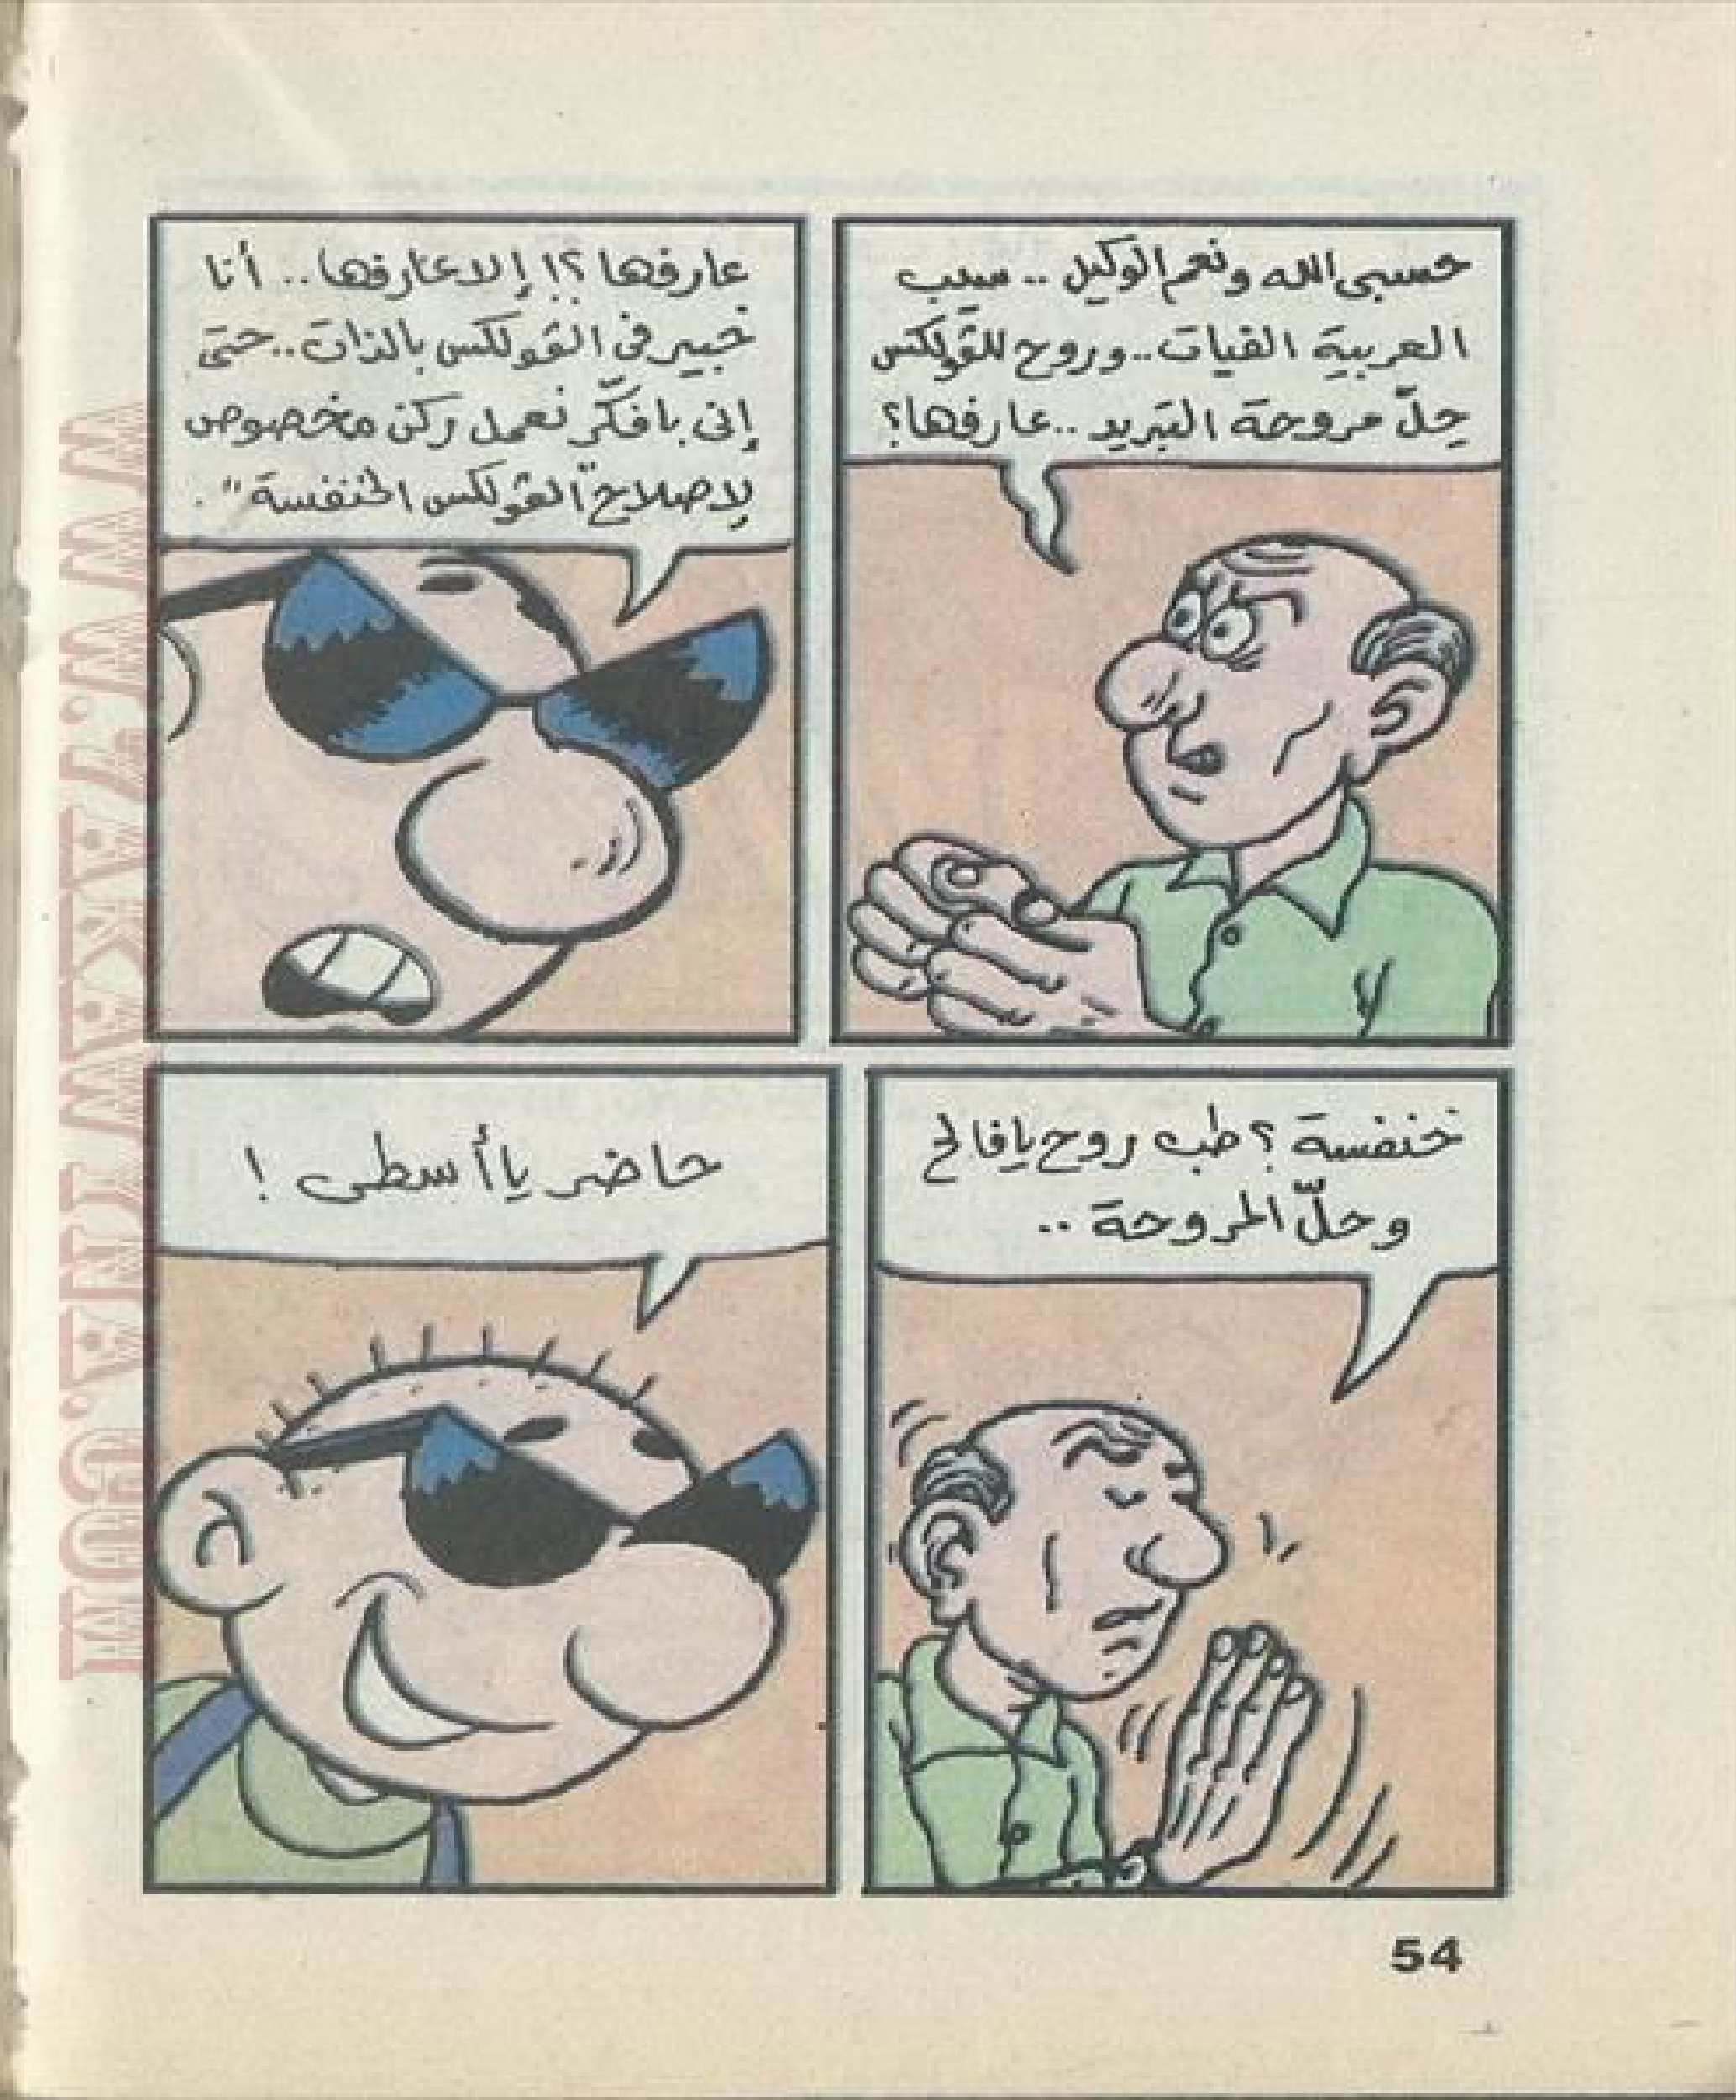 حسبى الله ونعم الوكيل .. سيب
العربية الفيات .. وروح للڤولكس
حِلّ مروحة التبريد .. عارفها؟
عارفها ؟! إلا عارفها .. أنا
خبير فى الڤولكس بالذات .. حتى
إنى بافكّر نعمل ركن مخصوص
لإصلاح "الڤولكس الخنفسة" .
خنفسة ؟ طب روح يا فالح
وحلّ المروحة ..
حاضر يا أسطى !
54
WWW.TAKAWINA.COM